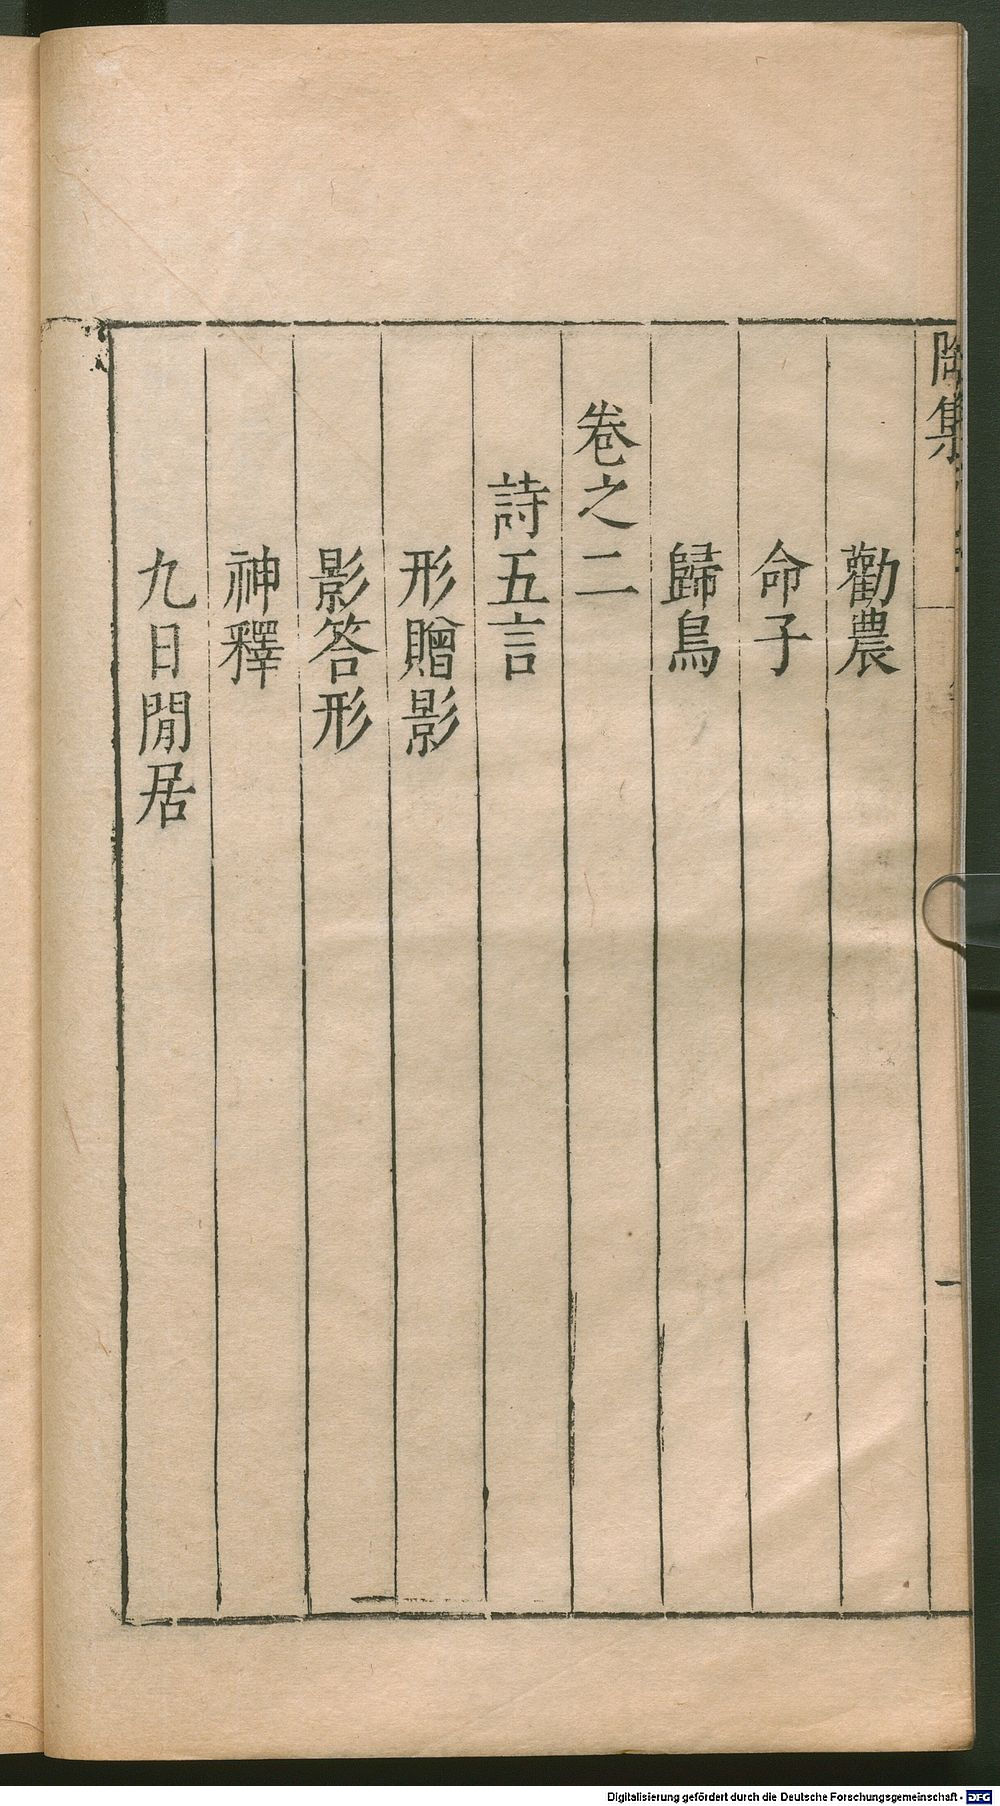 陶集
一
勸農
命子
歸鳥
卷之二
詩五言
形贈影
影答形
神釋
九日閒居
Digitalisierung gefördert durch die Deutsche Forschungsgemeinschaft - DFG